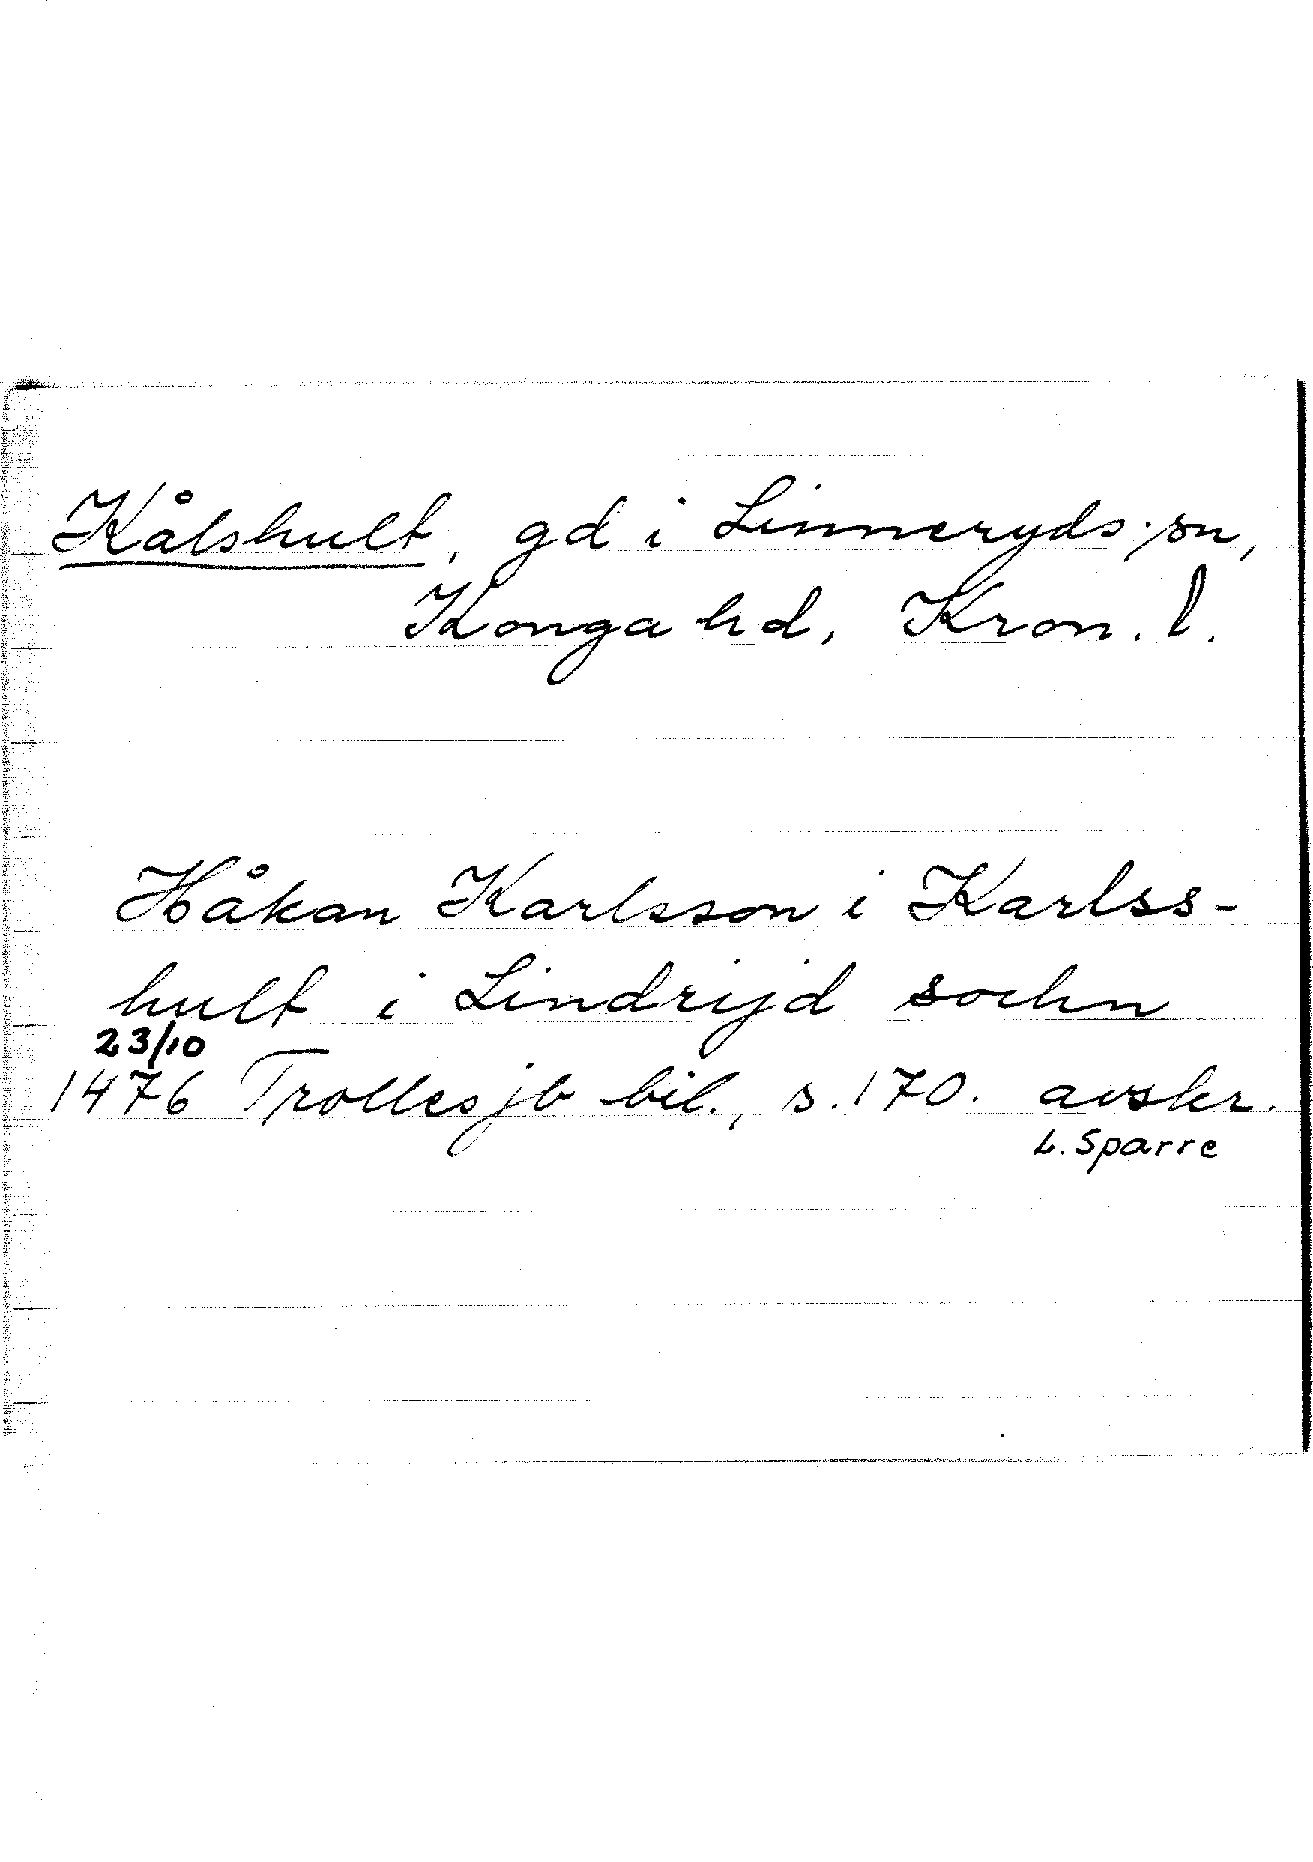 Kålshult, gd i Linneryds sn,
Konga hd, Kron. l.
Håkan Karlsson i Karlss-
hult i Lindrijd sochn
23/10
1476 Trollesjb bil., s. 170. avskr.
L. Sparre